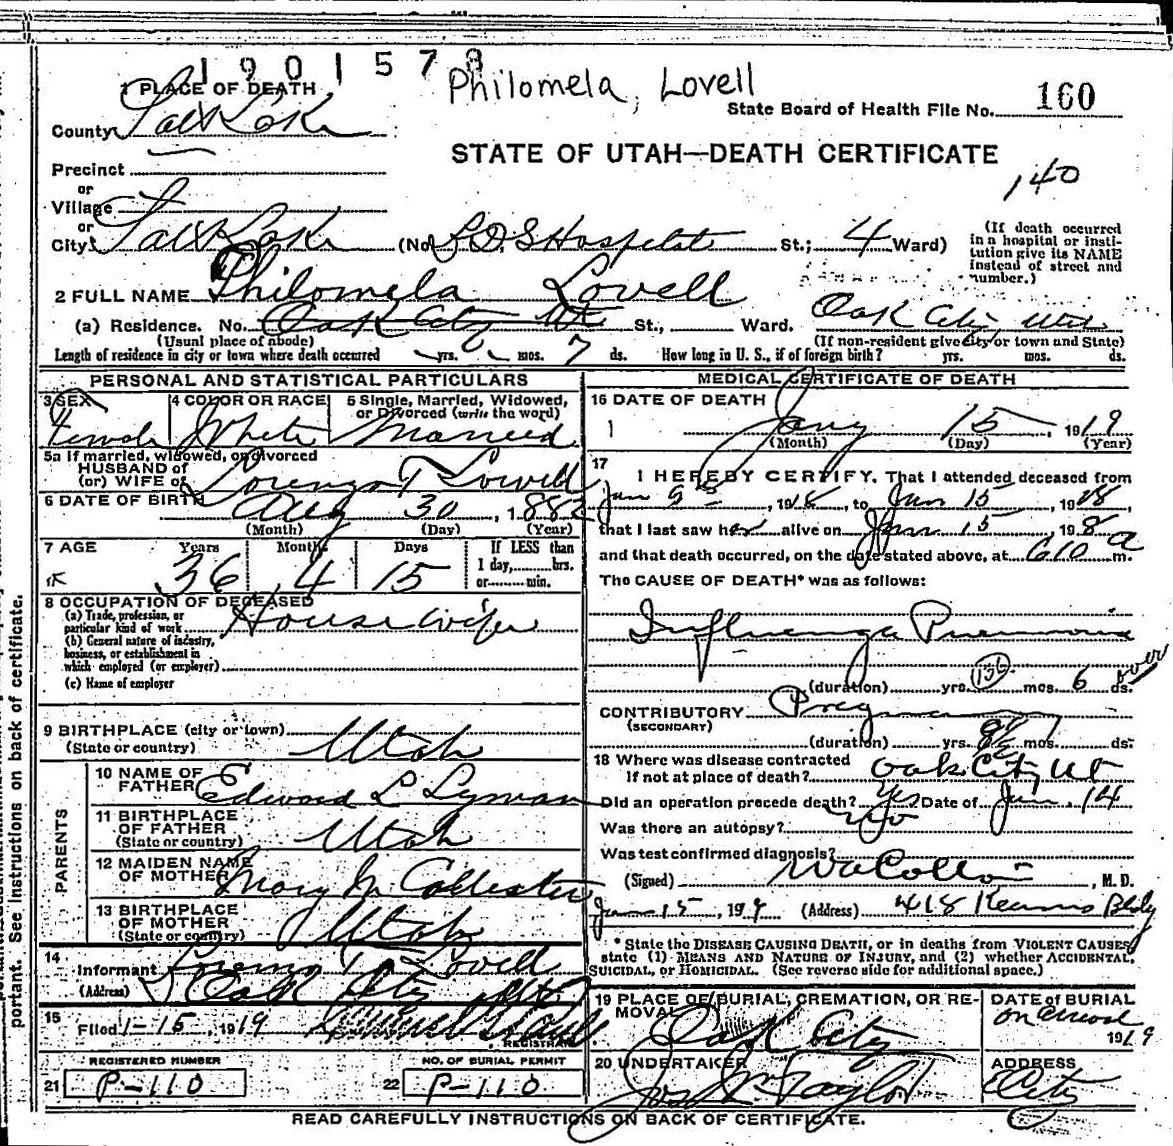 1901578
Philomela, Lovell
1 PLACE OF DEATH
State Board of Health File No. 160
County Salt Lake
STATE OF UTAH—DEATH CERTIFICATE
140
Precinct
or
Village
or
City Salt Lake (No. L D S Hospital St.; 4 Ward)
(If death occurred in a hospital or institution give its NAME instead of street and number.)
2 FULL NAME Philomela Lovell
(a) Residence. No. Oak City Ut St., Ward. Oak City, Utah
(Usual place of abode) (If non-resident give city or town and State)
Length of residence in city or town where death occurred yrs. mos. 7 ds. How long in U. S., if of foreign birth? yrs. mos. ds.
PERSONAL AND STATISTICAL PARTICULARS
3 SEX Female
4 COLOR OR RACE White
5 Single, Married, Widowed, or Divorced (write the word) Married
5a If married, widowed, or divorced
HUSBAND of
(or) WIFE of Lorenzo T Lovell
6 DATE OF BIRTH Aug 30, 1882
(Month) (Day) (Year)
7 AGE Years 36 Months 4 Days 15
If LESS than 1 day, hrs. or min.
8 OCCUPATION OF DECEASED
(a) Trade, profession, or particular kind of work Housewife
(b) General nature of industry, business, or establishment in which employed (or employer)
(c) Name of employer
9 BIRTHPLACE (city or town)
(State or country) Utah
PARENTS
10 NAME OF FATHER Edward L Lyman
11 BIRTHPLACE OF FATHER
(State or country) Utah
12 MAIDEN NAME OF MOTHER Mary M Callister
13 BIRTHPLACE OF MOTHER
(State or country) Utah
14 Informant Lorenzo T Lovell
(Address) Oak City Ut
15 Filed 1-15, 1919
REGISTRAR
REGISTERED NUMBER
21 P-110
NO. OF BURIAL PERMIT
22 P-110
MEDICAL CERTIFICATE OF DEATH
16 DATE OF DEATH
Jany 15, 1919
(Month) (Day) (Year)
17
I HEREBY CERTIFY, That I attended deceased from
Jan 9th, 1918, to Jan 15, 1918,
that I last saw her alive on Jan 15 198
and that death occurred, on the date stated above, at 610 a m.
The CAUSE OF DEATH* was as follows:
Influenza Pneumonia
(duration) yrs. mos. 6 ds. over
CONTRIBUTORY Pregnancy
(SECONDARY)
(duration) yrs. 8½ mos. ds.
18 Where was disease contracted
if not at place of death? Oak City Ut
Did an operation precede death? Yes Date of Jan. 14
Was there an autopsy? No
Was test confirmed diagnosis?
(Signed), M. D.
Jan 15, 1919 (Address) 418 Kearns Bldg
* State the DISEASE CAUSING DEATH, or in deaths from VIOLENT CAUSES, state (1) MEANS AND NATURE OF INJURY, and (2) whether ACCIDENTAL, SUICIDAL, or HOMICIDAL. (See reverse side for additional space.)
19 PLACE OF BURIAL, CREMATION, OR REMOVAL Oak City
DATE of BURIAL
on arrival 1919
20 UNDERTAKER Jos Wm Taylor
ADDRESS City
READ CAREFULLY INSTRUCTIONS ON BACK OF CERTIFICATE.
portant. See Instructions on back of certificate.